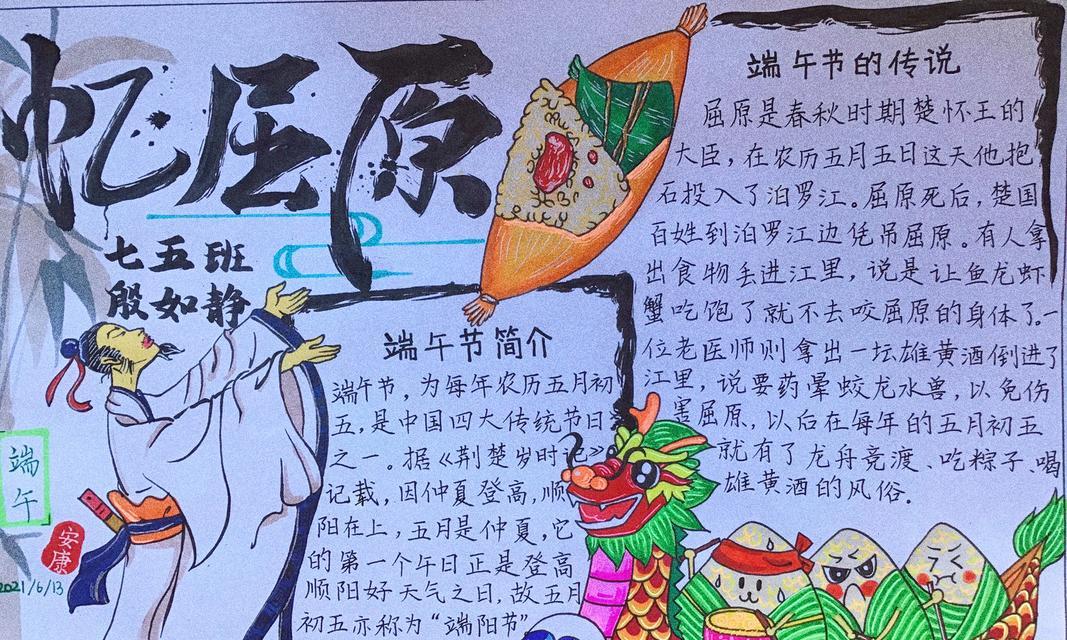 忆屈原
七五班
殷如静
端午
安康
2021/6/13
端午节简介
端午节，为每年农历五月初
五，是中国四大传统节日
之一。据《荆楚岁时记》
记载，因仲夏登高，顺
阳在上，五月是仲夏，它
的第一个午日正是登高
顺阳好天气之日，故五月
初五亦称为“端阳节”
端午节的传说
屈原是春秋时期楚怀王的
大臣，在农历五月五日这天他抱
石投入了泊罗江。屈原死后，楚国
百姓到泊罗江边凭吊屈原。有人拿
出食物丢进江里，说是让鱼龙虾
蟹吃饱了就不去咬屈原的身体了。一
位老医师则拿出一坛雄黄酒倒进了
江里，说要药晕蛟龙水兽，以免伤
害屈原，以后在每年的五月初五
就有了龙舟竞渡、吃粽子、喝
雄黄酒的风俗.